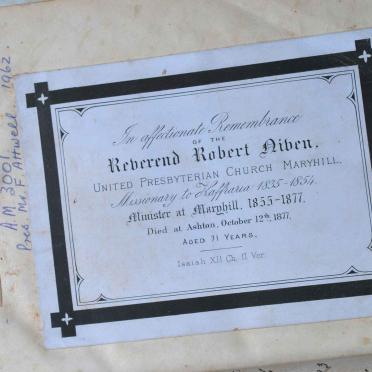 In affectionate Remembrance
OF THE
Reverend Robert Niven,
UNITED PRESBYTERIAN CHURCH MARYHILL.
Missionary to Kaffraria 1835-1854.
Minister at Maryhill, 1855-1877.
Died at Ashton, October 12th, 1877,
AGED 71 YEARS.
Isaiah XII Ch. II Ver.
AM 3001
Pres. Mr. F. Attwell 1962.